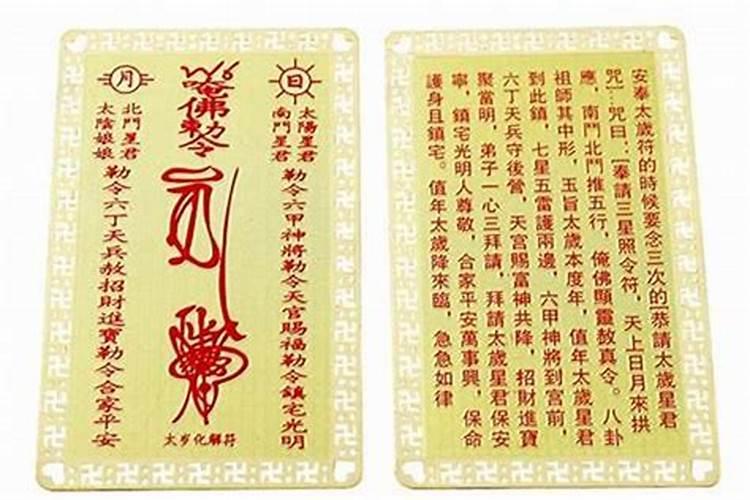 日
太陽星君
南鬥星君
勒令六甲神將勒令天官賜福勒令鎮宅光明
唵佛勅令
太岁化解符
月
北鬥星君
太陰娘娘
勒令六丁天兵赦招財進寶勒令合家平安
安奉太歲符的時候要念三次的[恭請太歲星君
咒]：咒曰：[奉請三星照令符，天上日月來拱
應，南鬥北鬥推五行，俺佛顯靈敖真令。八卦
祖師其中形，玉旨太歲本度年，值年太歲星君
到此鎮，七星五雷護兩邊，六甲神將到宮前，
六丁天兵守後營，天宮賜富神共降，招財進寶
聚當明，弟子一心三拜請，拜請太歲星君保安
寧，鎮宅光明人尊敬，合家平安萬事興，保命
護身且鎮宅。值年太歲降來臨，急急如律